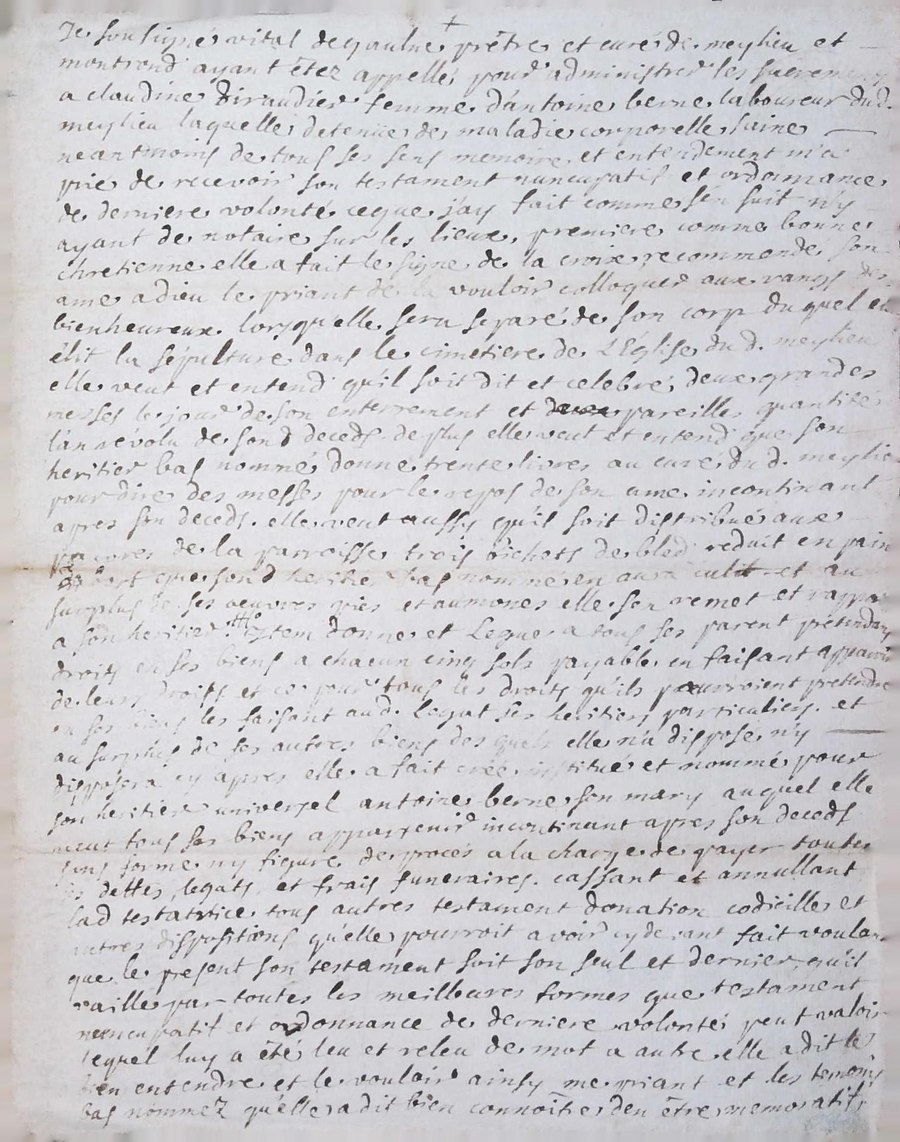 +
Je sousigné vital degaulne prêtre et curé de meylieu et
montrond ayant êtez appellé pour administrer les sacremens
a claudine Diraudier femme d'antoine berne laboureur dud.
meylieu laquelle detenüe de maladie corporelle saine
neantmoins de tous ses sens memoire et entendement m'a
prié de recevoir son testament nuncupatif et ordonnance
de derniere volonté ceque j'ay fait comme s'en suit n'y
ayant de notaire sur les lieux, premiere comme bonne
chretienne elle a fait le signe de la croix, recommende son
ame a dieu le priant de la vouloir colloquer aux rangs des
bienheureux lorsquelle sera separé de son corp du quel en
élit la sépulture dans le cimetiere de L'Église dud. meylieu
elle veut et entend qu'il soit dit et celebré deux grandes
messes le jour de son enterrement et pareilles quantité
l'an révolu de sond deceds. de plus elle veut et entend que son
heritier bas nommé donne trente livres au curé dud. meylieu
pour dire des messes pour le repos de son ame incontinant
apres son deceds. elle veut aussy qu'il soit distribué aux
pauvres de la parroisse trois bichets de bled reduit en pain
que sond heritié bas nomme en aura et au
surplus de ses oeuvres pies et aumones elle s'en remet et
a son heritier. Item donne et Legue a tous ses parent prétendans
droits en ses biens a chacun cinq sols payable en faisant apparoir
de leurs droits et ce pour tous les droits qu'ils pourroient pretendre
en ses biens les faisant aud. legat ses heritiers particuliers. et
au surplus de ses autres biens des quels elle n'a dispose n'y
disposera cy apres elle a fait créé institué et nommé pour
son heritiere universel antoine berne son mary auquel elle
veut tous ses biens appartenir incontinant apres son deceds
sans forme ny figure de procés a la charge de payer toutes
ses dettes, legats, et frais funeraires. cassant et annullant
lad testatrice tous autres testament donation codicille et
autres dispositions qu'elle pourroit avoir cydevant fait voulant
que le present son testament soit son seul et dernier, qu'il
vaille par toutes les meilleures formes que testament
nuncupatif et ordonnance de derniere volonté peut valoir
lequel luy a été leu et releu de mot a autre elle a dit le
bien entendre et le vouloir ainsy me priant et les temoins
bas nommez qu'elle a dit bien connoître d'en être memoratifs